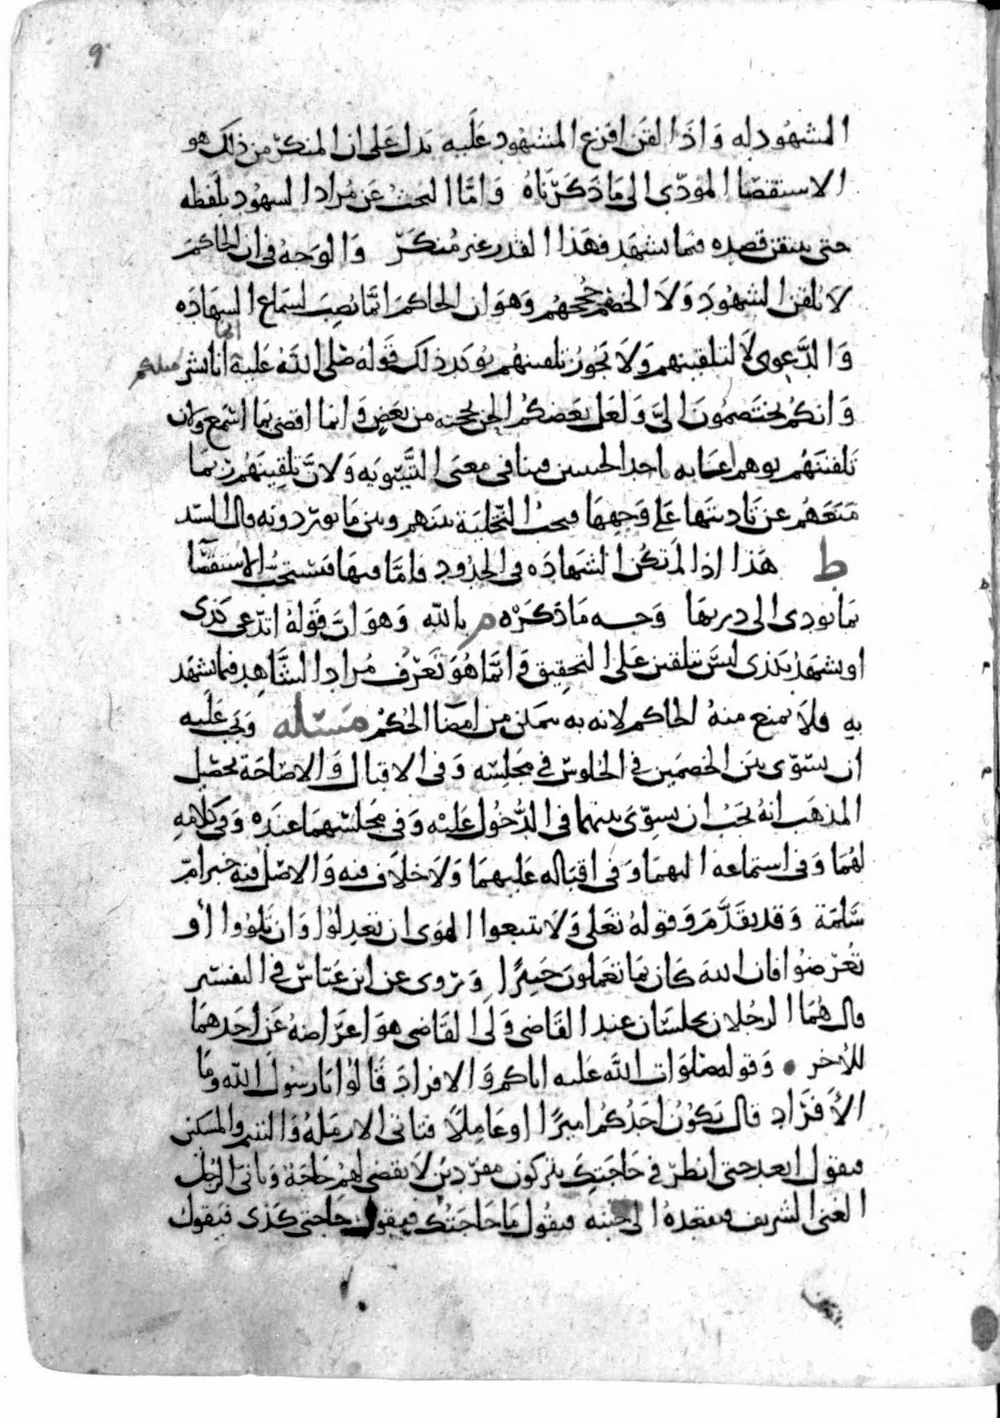 ٩
المشهود له واذا لقن افزع المشهود عليه يدل على ان المنكر من ذلك هو
الاستقصا المودي الى ما ذكرناه واما البحث عن مراد الشهود بلفظه
حتى يتيقن قصده فيما يشهد فهذا القدر غير منكر والوجه في ان الحاكم
لا يلقن الشهود ولا الخصم حججهم وهو ان الحاكم انما نصب لسماع الشهاده
والدعوى لا لتلقينهم ولا يجوز تلقينهم يويد ذلك قوله صلى الله عليه انما انا بشر مثلكم
وانكم تختصمون الي ولعل بعضكم الحن بحجته من بعض وانما اقضي بما اسمع ولان
تلقينهم يوهم اعنايه احد الخصمين فينافي معنى التسويه ولان تلقينهم ربما
منعهم عن تاديتها على وجهها فيجب التخلية بينهم وبين ما يوردونه قال السيد
ط هذا اذا لم تكن الشهاده في الحدود فاما فيها فيستحب الاستقصا
بما يودي الى دريها وجه ما ذكره م بالله وهو ان قوله اتدعي كذى
او يشهد بكذى ليس تلقين على التحقيق وانما هو تعرف مراد الشاهد فيما يشهد
به فلا يمنع منه الحاكم لانه به يتمكن من امضا الحكم مسئله ويجب عليه
ان يسوي بين الخصمين في الجلوس في مجلسه وفي الاقبال والاصاخة تحصيل
المذهب انه يجب ان يسوي بينهما في الدخول عليه وفي مجلسهما عنده وفي كلامه
لهما وفي استماعه اليهما وفي اقباله عليهما ولا خلاف فيه والاصل فيه خبر ام
سلمة وقد تقدم وقوله تعلى ولا تتبعوا الهوى ان تعدلوا وان تلووا او
تعرضوا فان الله كان بما تعملون خبيرا وتروى عن ابن عباس في التفسير
قال هما الرجلان يجلسان عند القاضي ولي القاضي هو اعراضه عن احدهما
للاخر • وقوله صلوات الله عليه اياكم والافراد قالوا يا رسول الله وما
الافراد قال يكون احدكم اميرا او عاملا فتاتي الارملة واليتيم والمسكين
فيقول اقعد حتى انظر في حاجتك يتركون مفردين لا يقضي لهم حاجة وياتي الرجل
الغني الشريف فيقعده الى جنبه فيقول ما حاجتك فيقول حاجتي كذى فيقول